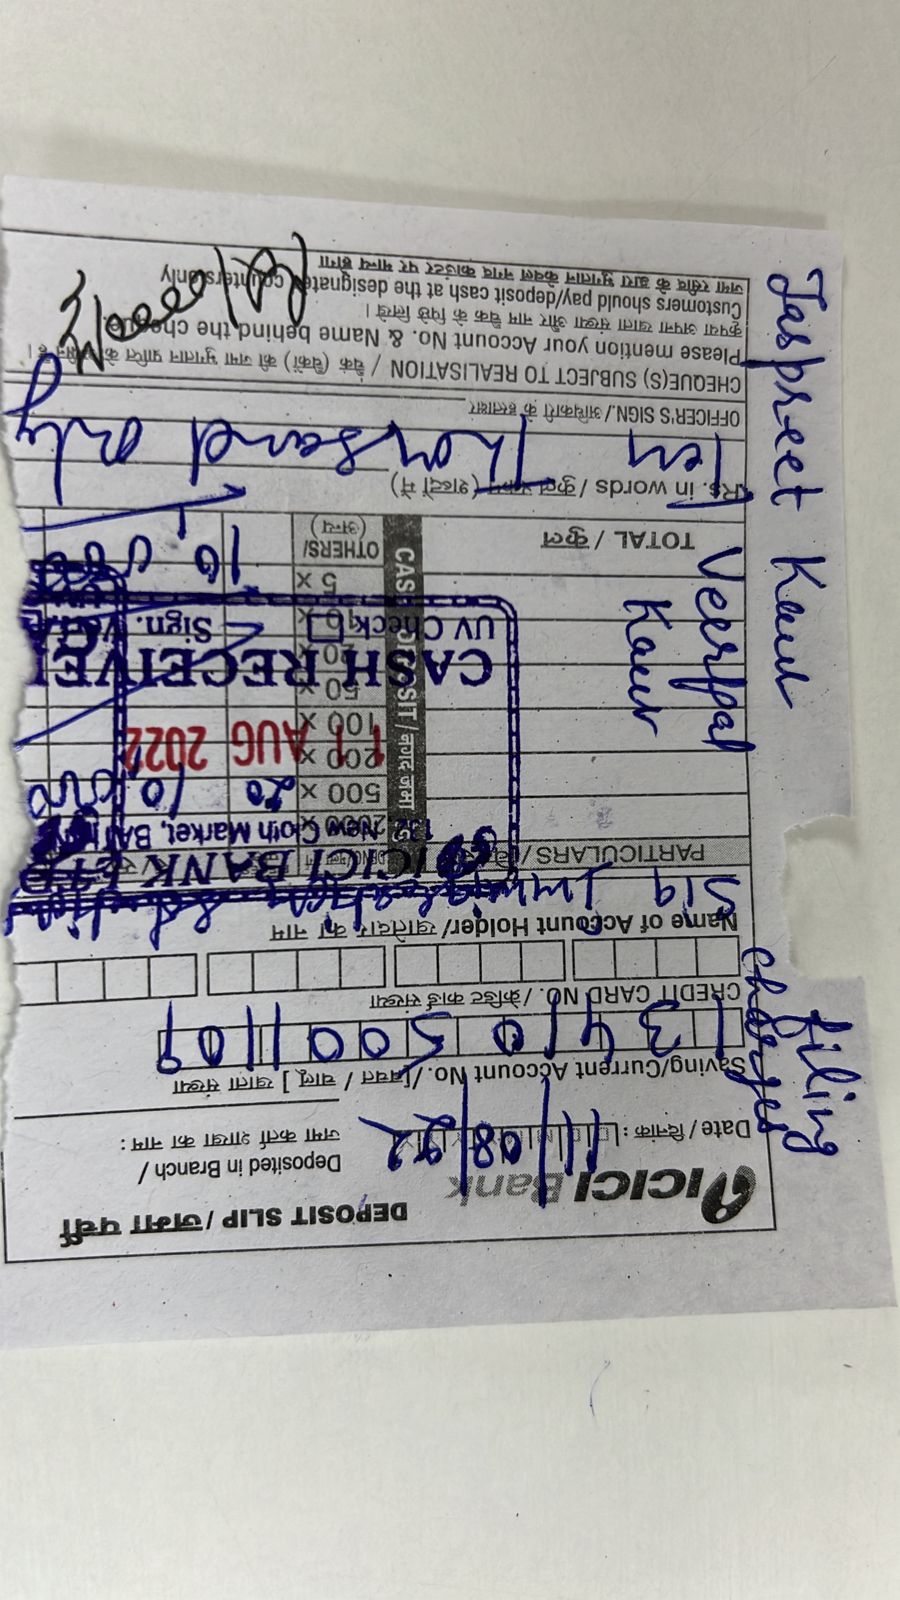 DEPOSIT SLIP / जमा पर्ची
ICICI Bank
Deposited in Branch /
जमा कर्ता शाखा का नाम :
Date / दिनांक : 11/08/22
Saving/Current Account No. / [बचत / चालू] खाता संख्या
CREDIT CARD NO. / क्रेडिट कार्ड संख्या
Name of Account Holder/ खातेदार का नाम
SIQ Immigration
ICICI BANK LTD
PARTICULARS/
New Cloth Market,
500 × 20 10,000
200 ×
100 ×
11 AUG 2022
50 ×
20 ×
CASH RECEIVED
UV Check Sign.
5 ×
OTHERS/ (अन्य)
CASH DEPOSIT / नगद जमा
TOTAL / कुल
10,000
Rs. in words / कुल रकम (शब्दों में)
Ten Thousand only
OFFICER'S SIGN./ अधिकारी के हस्ताक्षर
CHEQUE(S) SUBJECT TO REALISATION / चैक (चैकों) की जमा भुगतान प्राप्ति के अधीन है।
Please mention your Account No. & Name behind the cheque.
कृपया अपना खाता संख्या और नाम चैक के पिछे लिखें।
Customers should pay/deposit cash at the designated counters only
जमा रसीद के द्वारा भुगतान केवल नगद काउंटर पर मान्य होगा
Jaspreet Kaur
Veerpal
Kaur
filing
charges